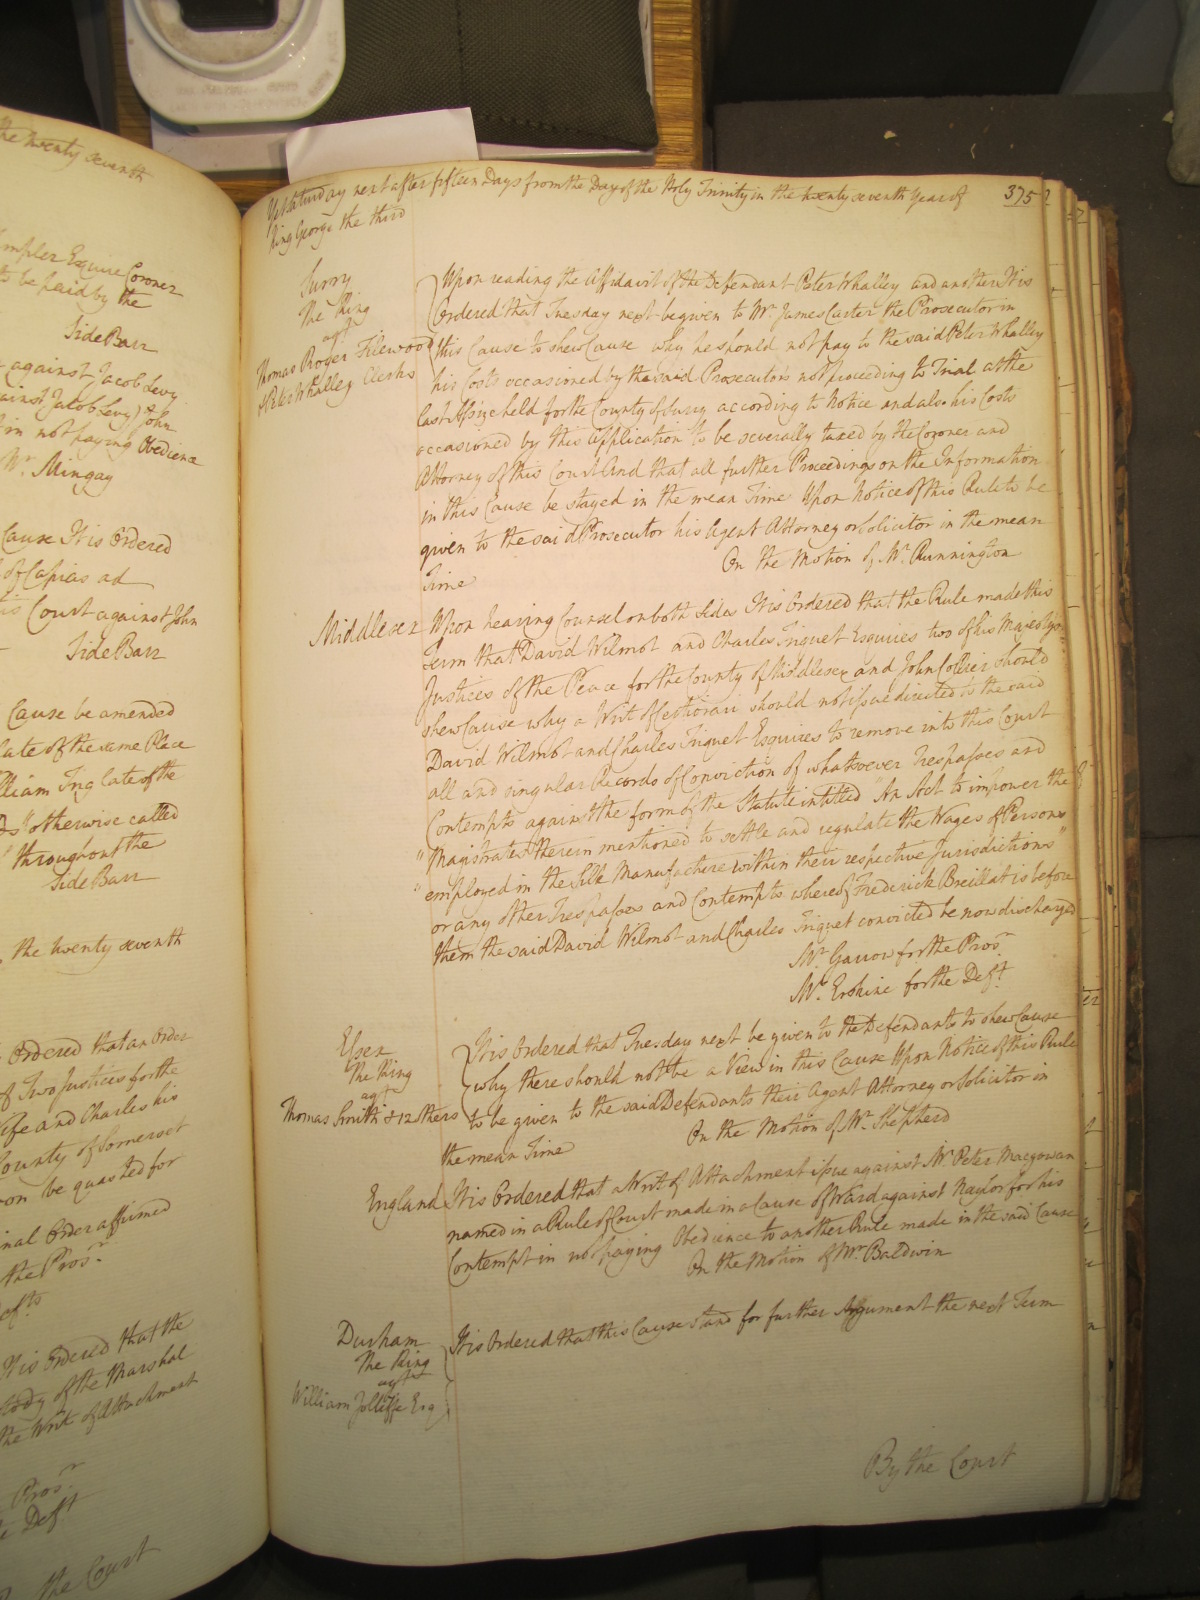 the twenty seventh
Esquire Coroner
to be paid by the
Side Barr
against Jacob Levy
against Jacob Levy & John
in not paying Obedience
Mr. Mingay
Cause It is Ordered
of Capias ad
Court against John
Side Barr
Cause be amended
late of the same Place
William Ing late of the
otherwise called
" throughout the
Side Barr
the twenty seventh
Ordered that an Order
of Two Justices for the
Wife and Charles his
County of Somerset
be quashed for
Order affirmed
the Pros.r
It is Ordered that the
Custody of the Marshal
the Writ of Attachment
Pros.r
Def.t
the Court
Saturday next after fifteen Days from the Day of the Holy Trinity in the twenty seventh Year of 375
King George the third
Surry
The King
agt
Thomas Roger Filewood
& Peter Whalley Clerks
Upon reading the Affidavit of the Defendant Peter Whalley and another It is
Ordered that Tuesday next be given to Mr. James Carter the Prosecutor in
this Cause to shew Cause why he should not pay to the said Peter Whalley
his Costs occasioned by the said Prosecutors not proceeding to Trial at the
last Assize held for the County of Surry according to Notice and also his Costs
occasioned by this Application to be severally taxed by the Coroner and
Attorney of this Court And that all further Proceedings on the Information
in this Cause be stayed in the mean Time Upon Notice of this Rule to be
given to the said Prosecutor his Agent Attorney or Solicitor in the mean
Time On the Motion of Mr. Runnington
Middlesex Upon hearing Counsel on both Sides It is Ordered that the Rule made this
Term that David Wilmot and Charles Triquet Esquires two of his Majestys
Justices of the Peace for the County of Middlesex and John Collier should
shew Cause why a Writ of Certiorari should not issue directed to the said
David Wilmot and Charles Triquet Esquires to remove into this Court
all and singular Records of Conviction of whatsoever Trespasses and
Contempts against the form of the Statute intitled "An Act to impower the
" Magistrates therein mentioned to settle and regulate the Wages of Persons
" employed in the Silk Manufacture within their respective Jurisdictions"
or any other Trespasses and Contempts whereof Frederick Breillat is before
them the said David Wilmot and Charles Triquet convicted be now discharged
Mr. Garrow for the Pros.r
Mr. Erskine for the Def.t
Essex
The King
agt
Thomas Smith & 12 others
It is Ordered that Tuesday next be given to the Defendants to shew Cause
why there should not be a View in this Cause Upon Notice of this Rule
to be given to the said Defendants their Agent Attorney or Solicitor in
the mean Time On the Motion of Mr. Shepherd
England It is Ordered that a Writ of Attachment issue against Mr. Peter Macgowan
named in a Rule of Court made in a Cause of Ward against Naylor for his
Contempt in not paying Obedience to another Rule made in the said Cause
On the Motion of Mr. Baldwin
Durham
The King
agt
William Jolliffe Esq
It is Ordered that this Cause stand for further Argument the next Term
By the Court